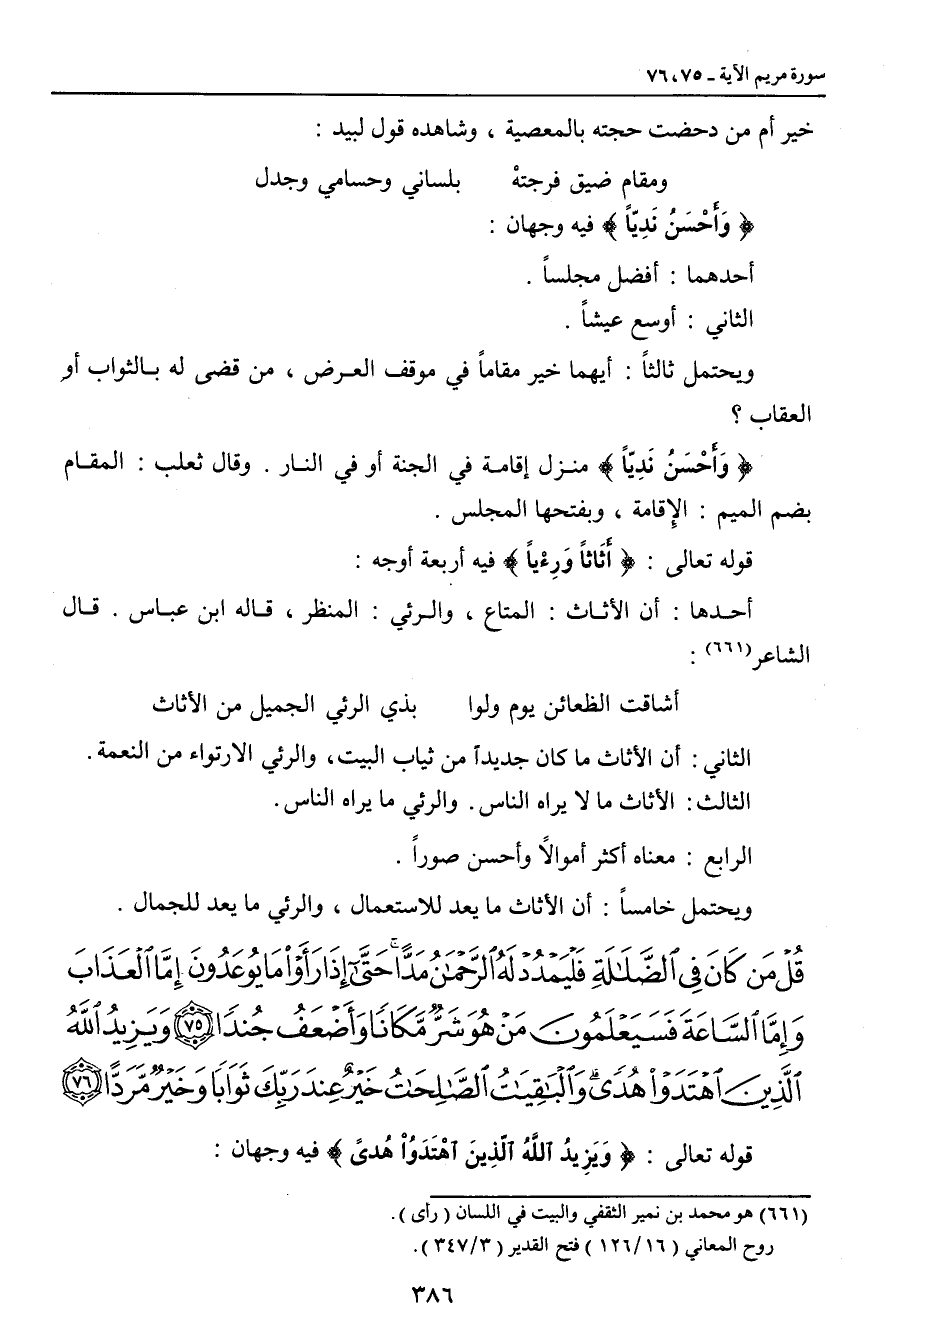 سورة مريم الآية ـ ٧٥، ٧٦
خير أم من دحضت حجته بالمعصية ، وشاهده قول لبيد :
ومقام ضيق فرجتهْ بلساني وحسامي وجدل
﴿ وَأَحْسَنُ نَدِيّاً ﴾ فيه وجهان :
أحدهما : أفضل مجلساً .
الثاني : أوسع عيشاً .
ويحتمل ثالثاً : أيهما خير مقاماً في موقف العرض ، من قضى له بالثواب أو
العقاب ؟
﴿ وَأَحْسَنُ نَدِيّاً ﴾ منزل إقامة في الجنة أو في النار . وقال ثعلب : المقام
بضم الميم : الإقامة ، وبفتحها المجلس .
قوله تعالى : ﴿ أَثَاثاً وَرِءْياً ﴾ فيه أربعة أوجه :
أحدها : أن الأثاث : المتاع ، والرئي : المنظر ، قاله ابن عباس . قال
الشاعر(٦٦١) :
أشاقت الظعائن يوم ولوا بذي الرئي الجميل من الأثاث
الثاني : أن الأثاث ما كان جديداً من ثياب البيت، والرئي الارتواء من النعمة.
الثالث: الأثاث ما لا يراه الناس. والرئي ما يراه الناس.
الرابع : معناه أكثر أموالًا وأحسن صوراً .
ويحتمل خامساً : أن الأثاث ما يعد للاستعمال ، والرئي ما يعد للجمال .
قُلْ مَن كَانَ فِي ٱلضَّلَٰلَةِ فَلْيَمْدُدْ لَهُ ٱلرَّحْمَٰنُ مَدًّا ۚ حَتَّىٰٓ إِذَا رَأَوْا۟ مَا يُوعَدُونَ إِمَّا ٱلْعَذَابَ
وَإِمَّا ٱلسَّاعَةَ فَسَيَعْلَمُونَ مَنْ هُوَ شَرٌّ مَّكَانًا وَأَضْعَفُ جُندًا ٧٥ وَيَزِيدُ ٱللَّهُ
ٱلَّذِينَ ٱهْتَدَوْا۟ هُدًى ۗ وَٱلْبَٰقِيَٰتُ ٱلصَّٰلِحَٰتُ خَيْرٌ عِندَ رَبِّكَ ثَوَابًا وَخَيْرٌ مَّرَدًّا ٧٦
قوله تعالى : ﴿ وَيَزِيدُ ٱللَّهُ ٱلَّذِينَ ٱهْتَدَوْاْ هُدىً ﴾ فيه وجهان :
(٦٦١) هو محمد بن نمير الثقفي والبيت في اللسان ( رأى ).
روح المعاني ( ١٢٦/١٦ ) فتح القدير ( ٣٤٧/٣ ).
٣٨٦